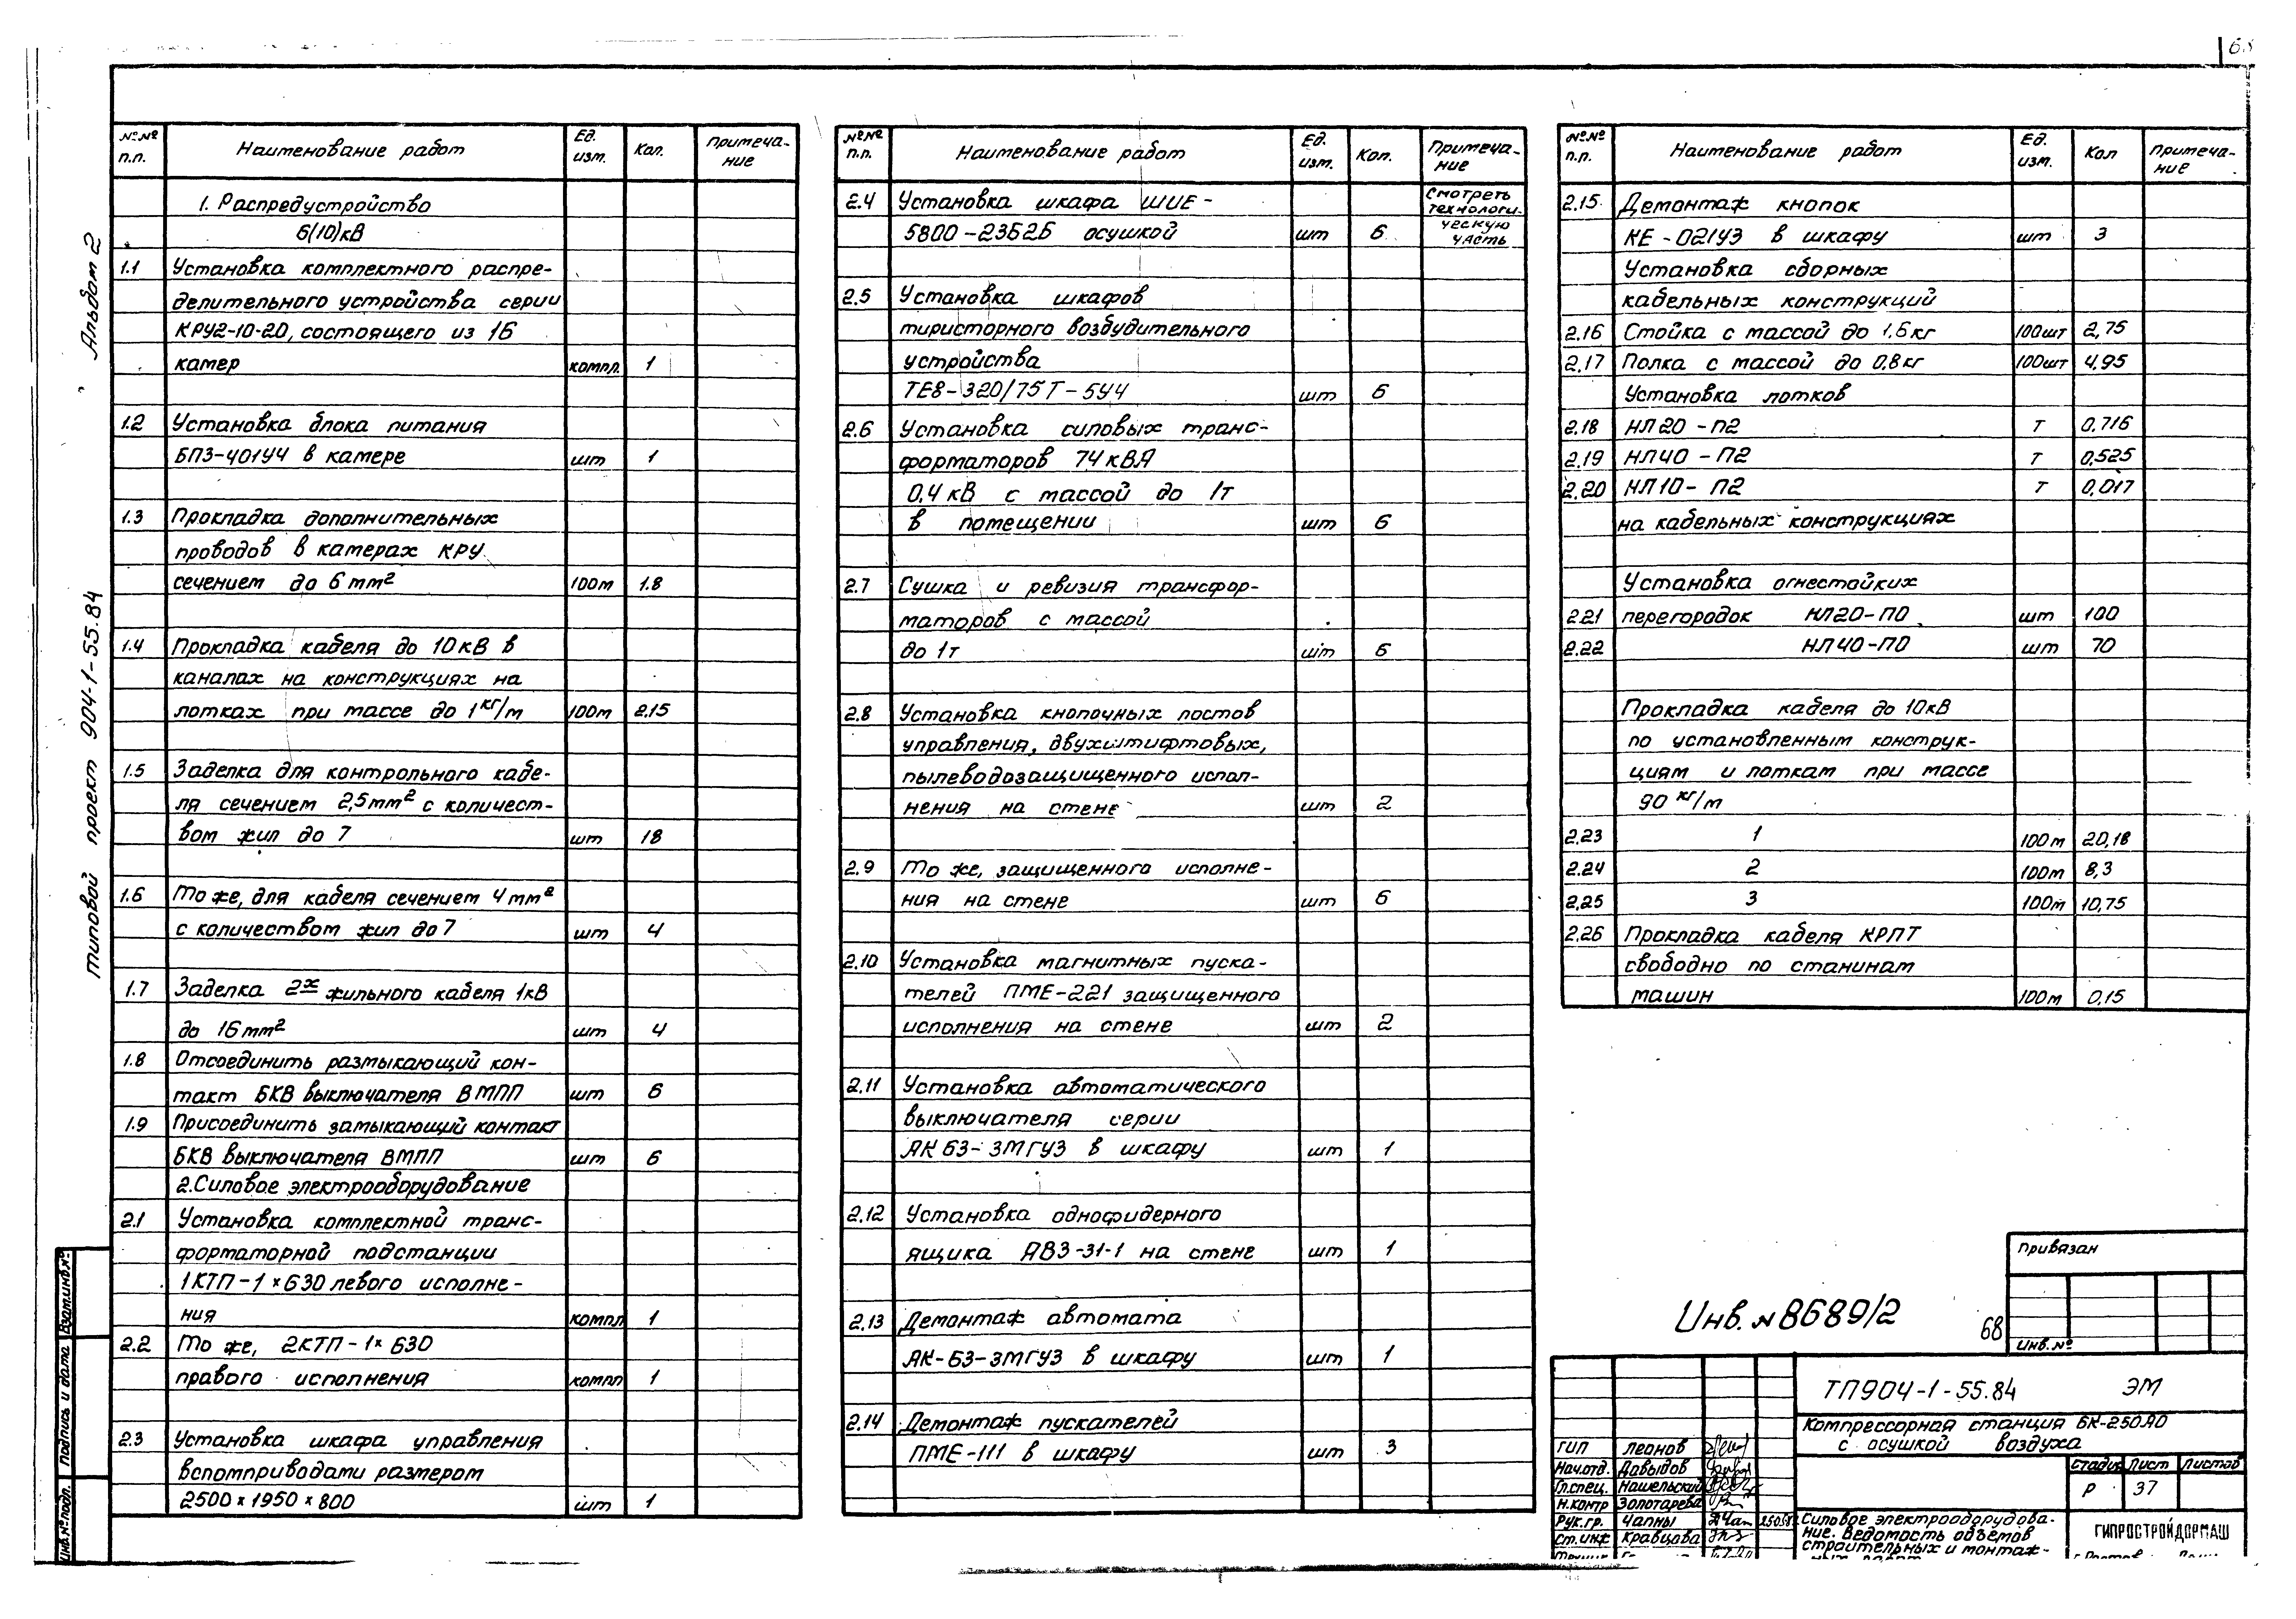 Альбом 2
типовой проект 904-1-55.84
№№ п.п. Наименование работ Ед. изм. Кол. Примечание
1. Распредустройство
6(10)кВ
1.1 Установка комплектного распре-
делительного устройства серии
КРУ2-10-20, состоящего из 16
камер компл. 1
1.2 Установка блока питания
БПЗ-401У4 в камере шт 1
1.3 Прокладка дополнительных
проводов в камерах КРУ
сечением до 6 мм² 100м 1.8
1.4 Прокладка кабеля до 10кВ в
каналах на конструкциях на
лотках при массе до 1 кг/м 100м 2.15
1.5 Заделка для контрольного кабе-
ля сечением 2,5мм² с количест-
вом жил до 7 шт 18
1.6 То же, для кабеля сечением 4 мм²
с количеством жил до 7 шт 4
1.7 Заделка 2х жильного кабеля 1кВ
до 16мм² шт 4
1.8 Отсоединить размыкающий кон-
такт БКВ выключателя ВМПП шт 6
1.9 Присоединить замыкающий контакт
БКВ выключателя ВМПП шт 6
2.Силовое электрооборудование
2.1 Установка комплектной транс-
форматорной подстанции
1КТП-1×630 левого исполне-
ния компл 1
2.2 То же, 2КТП-1×630
правого исполнения компл 1
2.3 Установка шкафа управления
вспомприводами размером
2500×1950×800 шт 1
№№ п.п. Наименование работ Ед. изм. Кол. Примечание
2.4 Установка шкафа ШИЕ- Смотреть технологи-
5800-23Б2Б осушкой шт 6 ческую часть
2.5 Установка шкафов
тиристорного возбудительного
устройства
ТЕ8-320/75Т-5У4 шт 6
2.6 Установка силовых транс-
форматоров 74кВА
0,4 кВ с массой до 1т
в помещении шт 6
2.7 Сушка и ревизия трансфор-
маторов с массой
до 1т шт 6
2.8 Установка кнопочных постов
управления, двухштифтовых,
пылеводозащищенного испол-
нения на стене шт 2
2.9 То же, защищенного исполне-
ния на стене шт 6
2.10 Установка магнитных пуска-
телей ПМЕ-221 защищенного
исполнения на стене шт 2
2.11 Установка автоматического
выключателя серии
АК 63-3МГУЗ в шкафу шт 1
2.12 Установка однофидерного
ящика ЯВЗ-31-1 на стене шт 1
2.13 Демонтаж автомата
АК-63-3МГУЗ в шкафу шт 1
2.14 Демонтаж пускателей
ПМЕ-111 в шкафу шт 3
№№ п.п. Наименование работ Ед. изм. Кол Примечание
2.15. Демонтаж кнопок
КЕ-021У3 в шкафу шт 3
Установка сборных
кабельных конструкций
2.16 Стойка с массой до 1,6кг 100шт 2,75
2.17 Полка с массой до 0,8кг 100шт 4,95
Установка лотков
2.18 НЛ20-П2 т 0,716
2.19 НЛ40-П2 т 0,525
2.20 НЛ10-П2 т 0,017
на кабельных конструкциях
Установка огнестойких
2.21 перегородок НЛ20-П0 шт 100
2.22 НЛ40-П0 шт 70
Прокладка кабеля до 10кВ
по установленным конструк-
циям и лоткам при массе
90 кг/м
2.23 1 100м 20,18
2.24 2 100м 8,3
2.25 3 100м 10,75
2.26 Прокладка кабеля КРПТ
свободно по станинам
машин 100м 0,15
Инв. №8689/2
68
Привязан
Инв. №
ТП904-1-55.84 ЭМ
Компрессорная станция 6К-250А0
с осушкой воздуха
ГИП Леонов
Нач.отд. Давыдов
Гл.спец. Нашельский
Н.контр Золотарева
Рук.гр. Чапны
Ст.инж Кравцова
Стадия Лист Листов
Р 37
Силовое электрооборудова-
ние. Ведомость объемов
строительных и монтаж-
ГИПРОСТРОЙДОРМАШ
Взам.инв.№
Подпись и дата
Инв.№ подл.